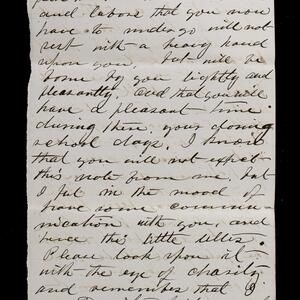 and labors that you now
have to undergo will not
rest with a heavy hand
upon you, but will be
borne by you lightly and
pleasantly, and that you will
have a pleasant time
during these, your closing
school days. I know
that you will not expect
this note from me, but
I felt in the mood of
have some commu-
nication with you, and
hence this little letter.
Please look upon it
with the eye of charity
and remember that I